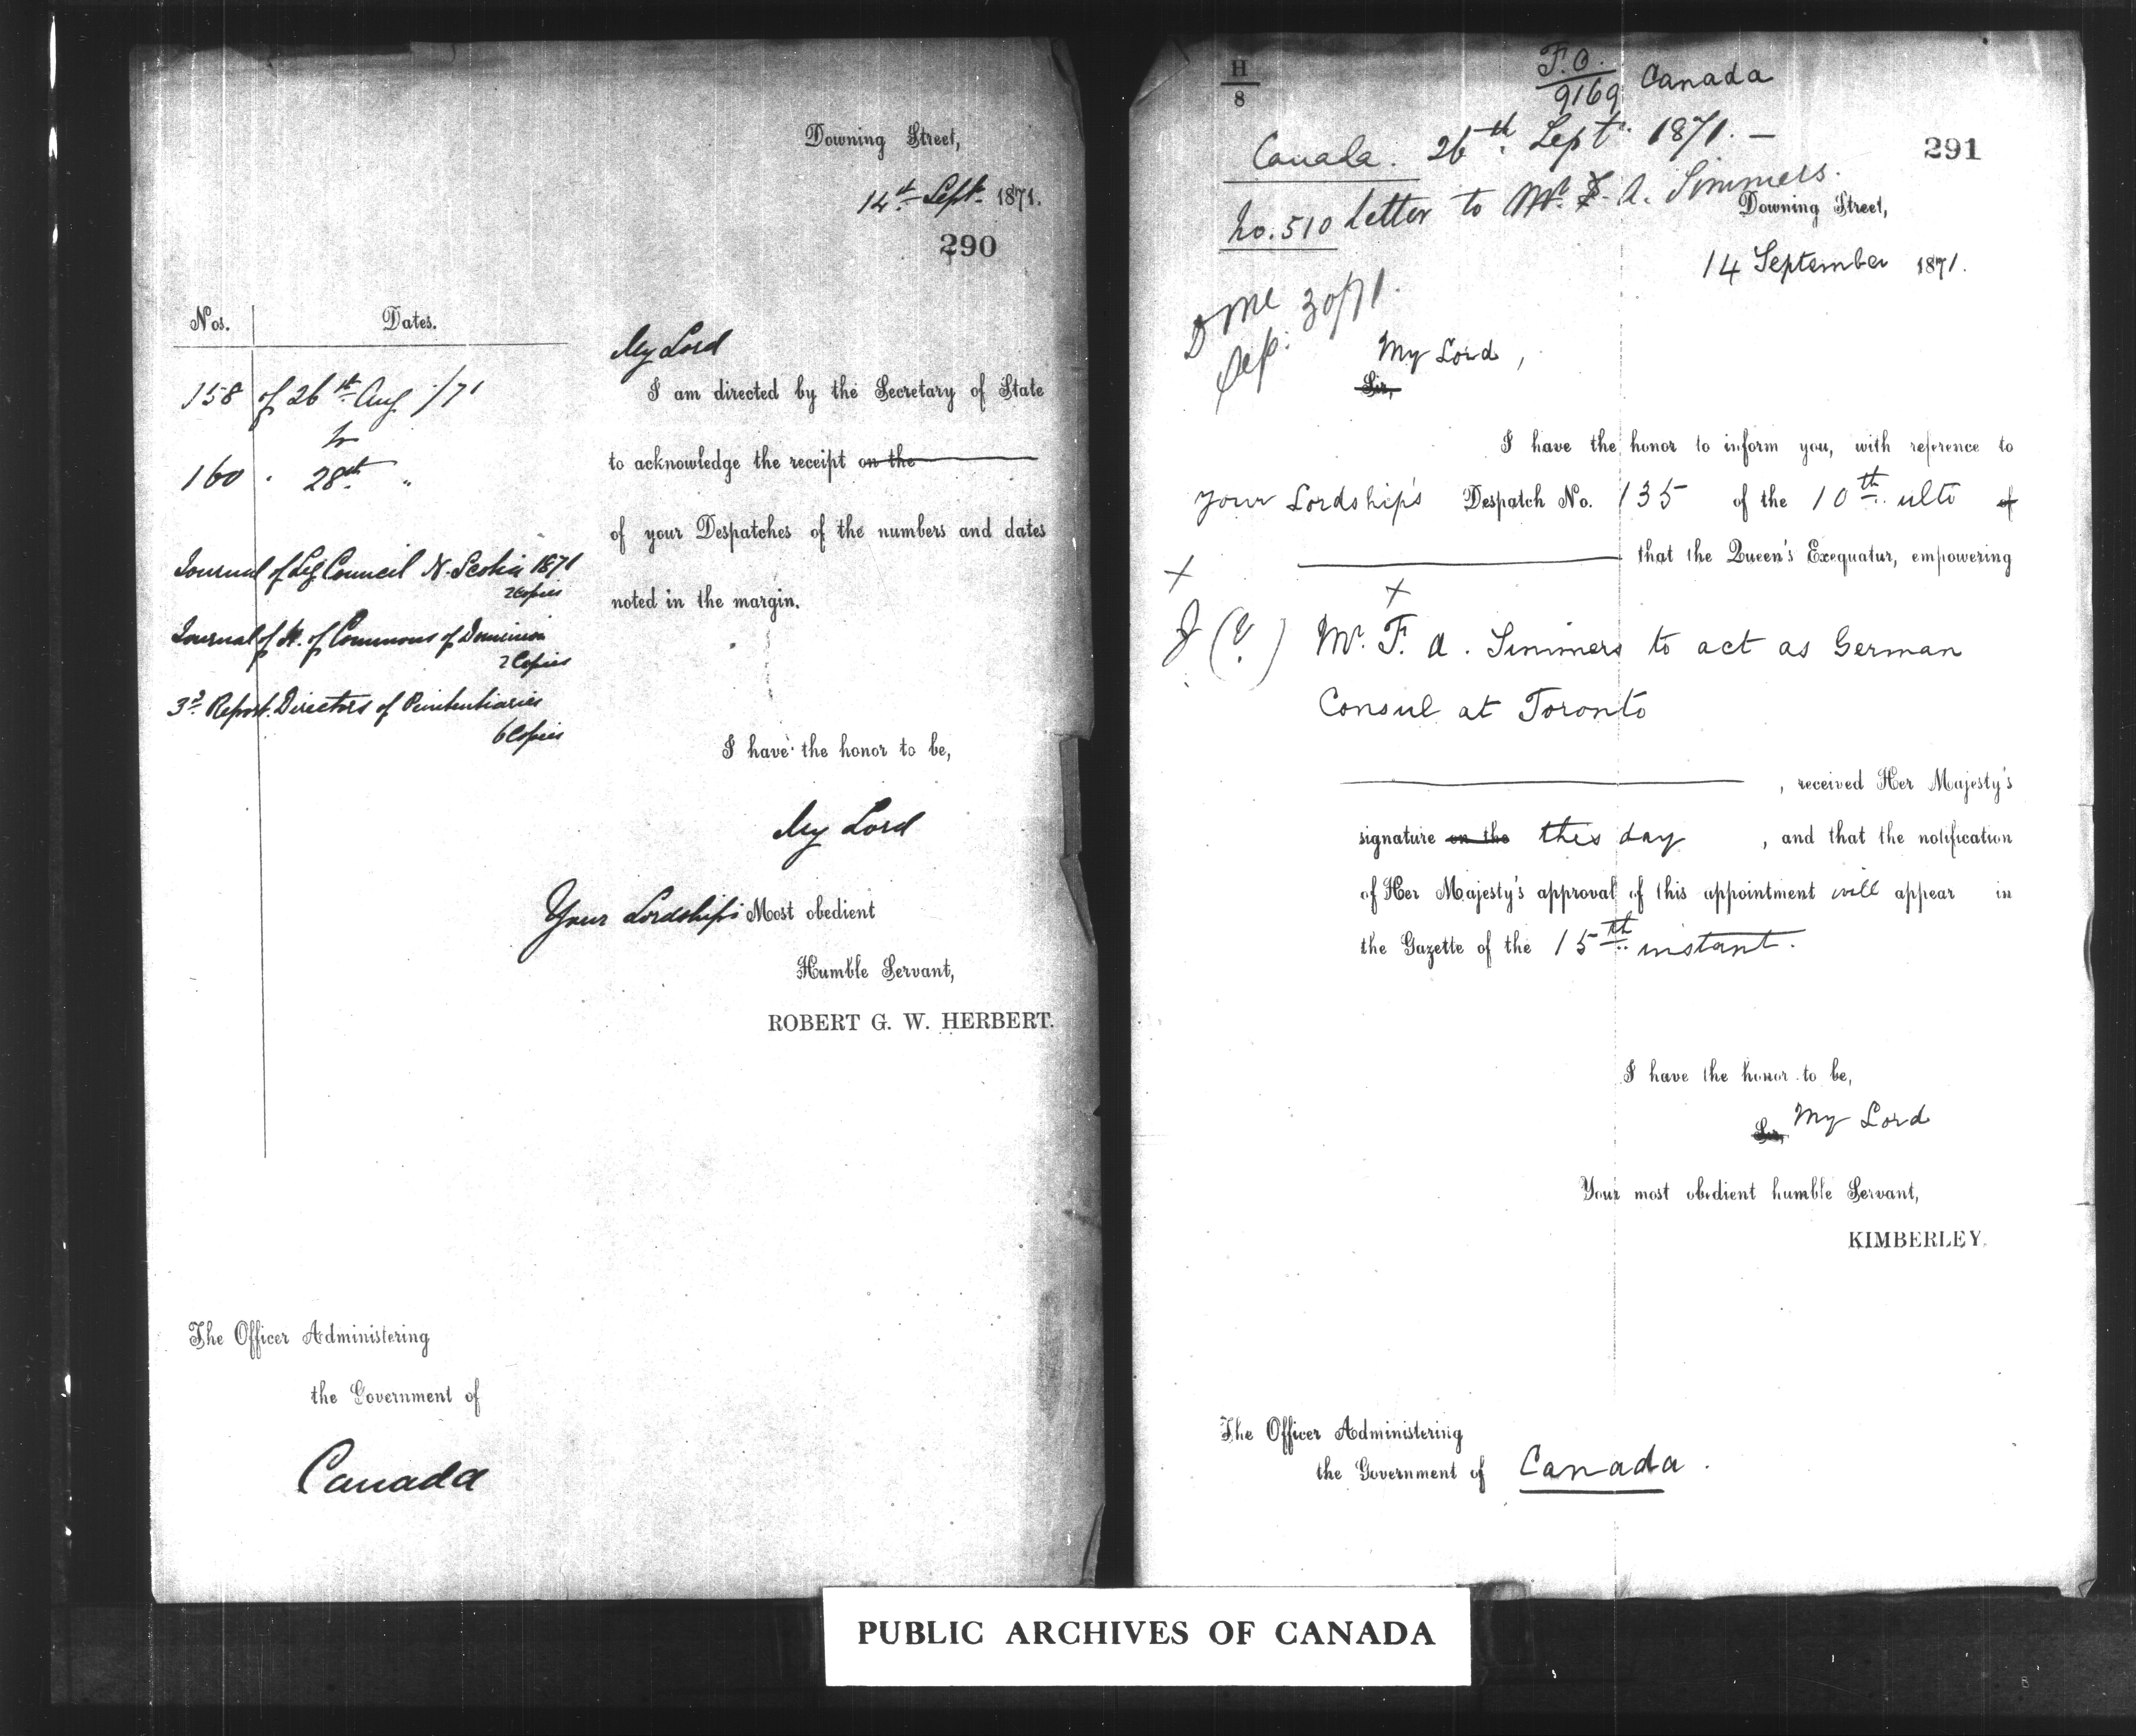 Downing Street,
14th Sept. 1871.
290
Nos. Dates.
158 of 26th Aug /71
to
160 . 28th "
Journal of Leg Council N. Scotia 1871
2 Copies
Journal of H. of Commons of Dominion
2 Copies
3d Report Directors of Penitentiaries
6 Copies
My Lord
I am directed by the Secretary of State
to acknowledge the receipt on the
of your Despatches of the numbers and dates
noted in the margin.
I have the honor to be,
My Lord
Your Lordship's Most obedient
Humble Servant,
ROBERT G. W. HERBERT.
The Officer Administering
the Government of
Canada
H
8
F.O.
9169 Canada
Canada. 26th Sept. 1871. –
No. 510 Letter to Mr. A. Simmers.
291
Downing Street,
14 September 1871.
Sep. 30/71.
My Lord,
Sir,
I have the honor to inform you, with reference to
your Lordship's Despatch No. 135 of the 10th ulto of
that the Queen's Exequatur, empowering
x x
J (?) Mr. F. A. Simmers to act as German
Consul at Toronto
, received Her Majesty's
signature on the this day , and that the notification
of Her Majesty's approval of this appointment will appear in
the Gazette of the 15th instant.
I have the honor to be,
Sir, My Lord
Your most obedient humble Servant,
KIMBERLEY.
The Officer Administering
the Government of Canada.
PUBLIC ARCHIVES OF CANADA